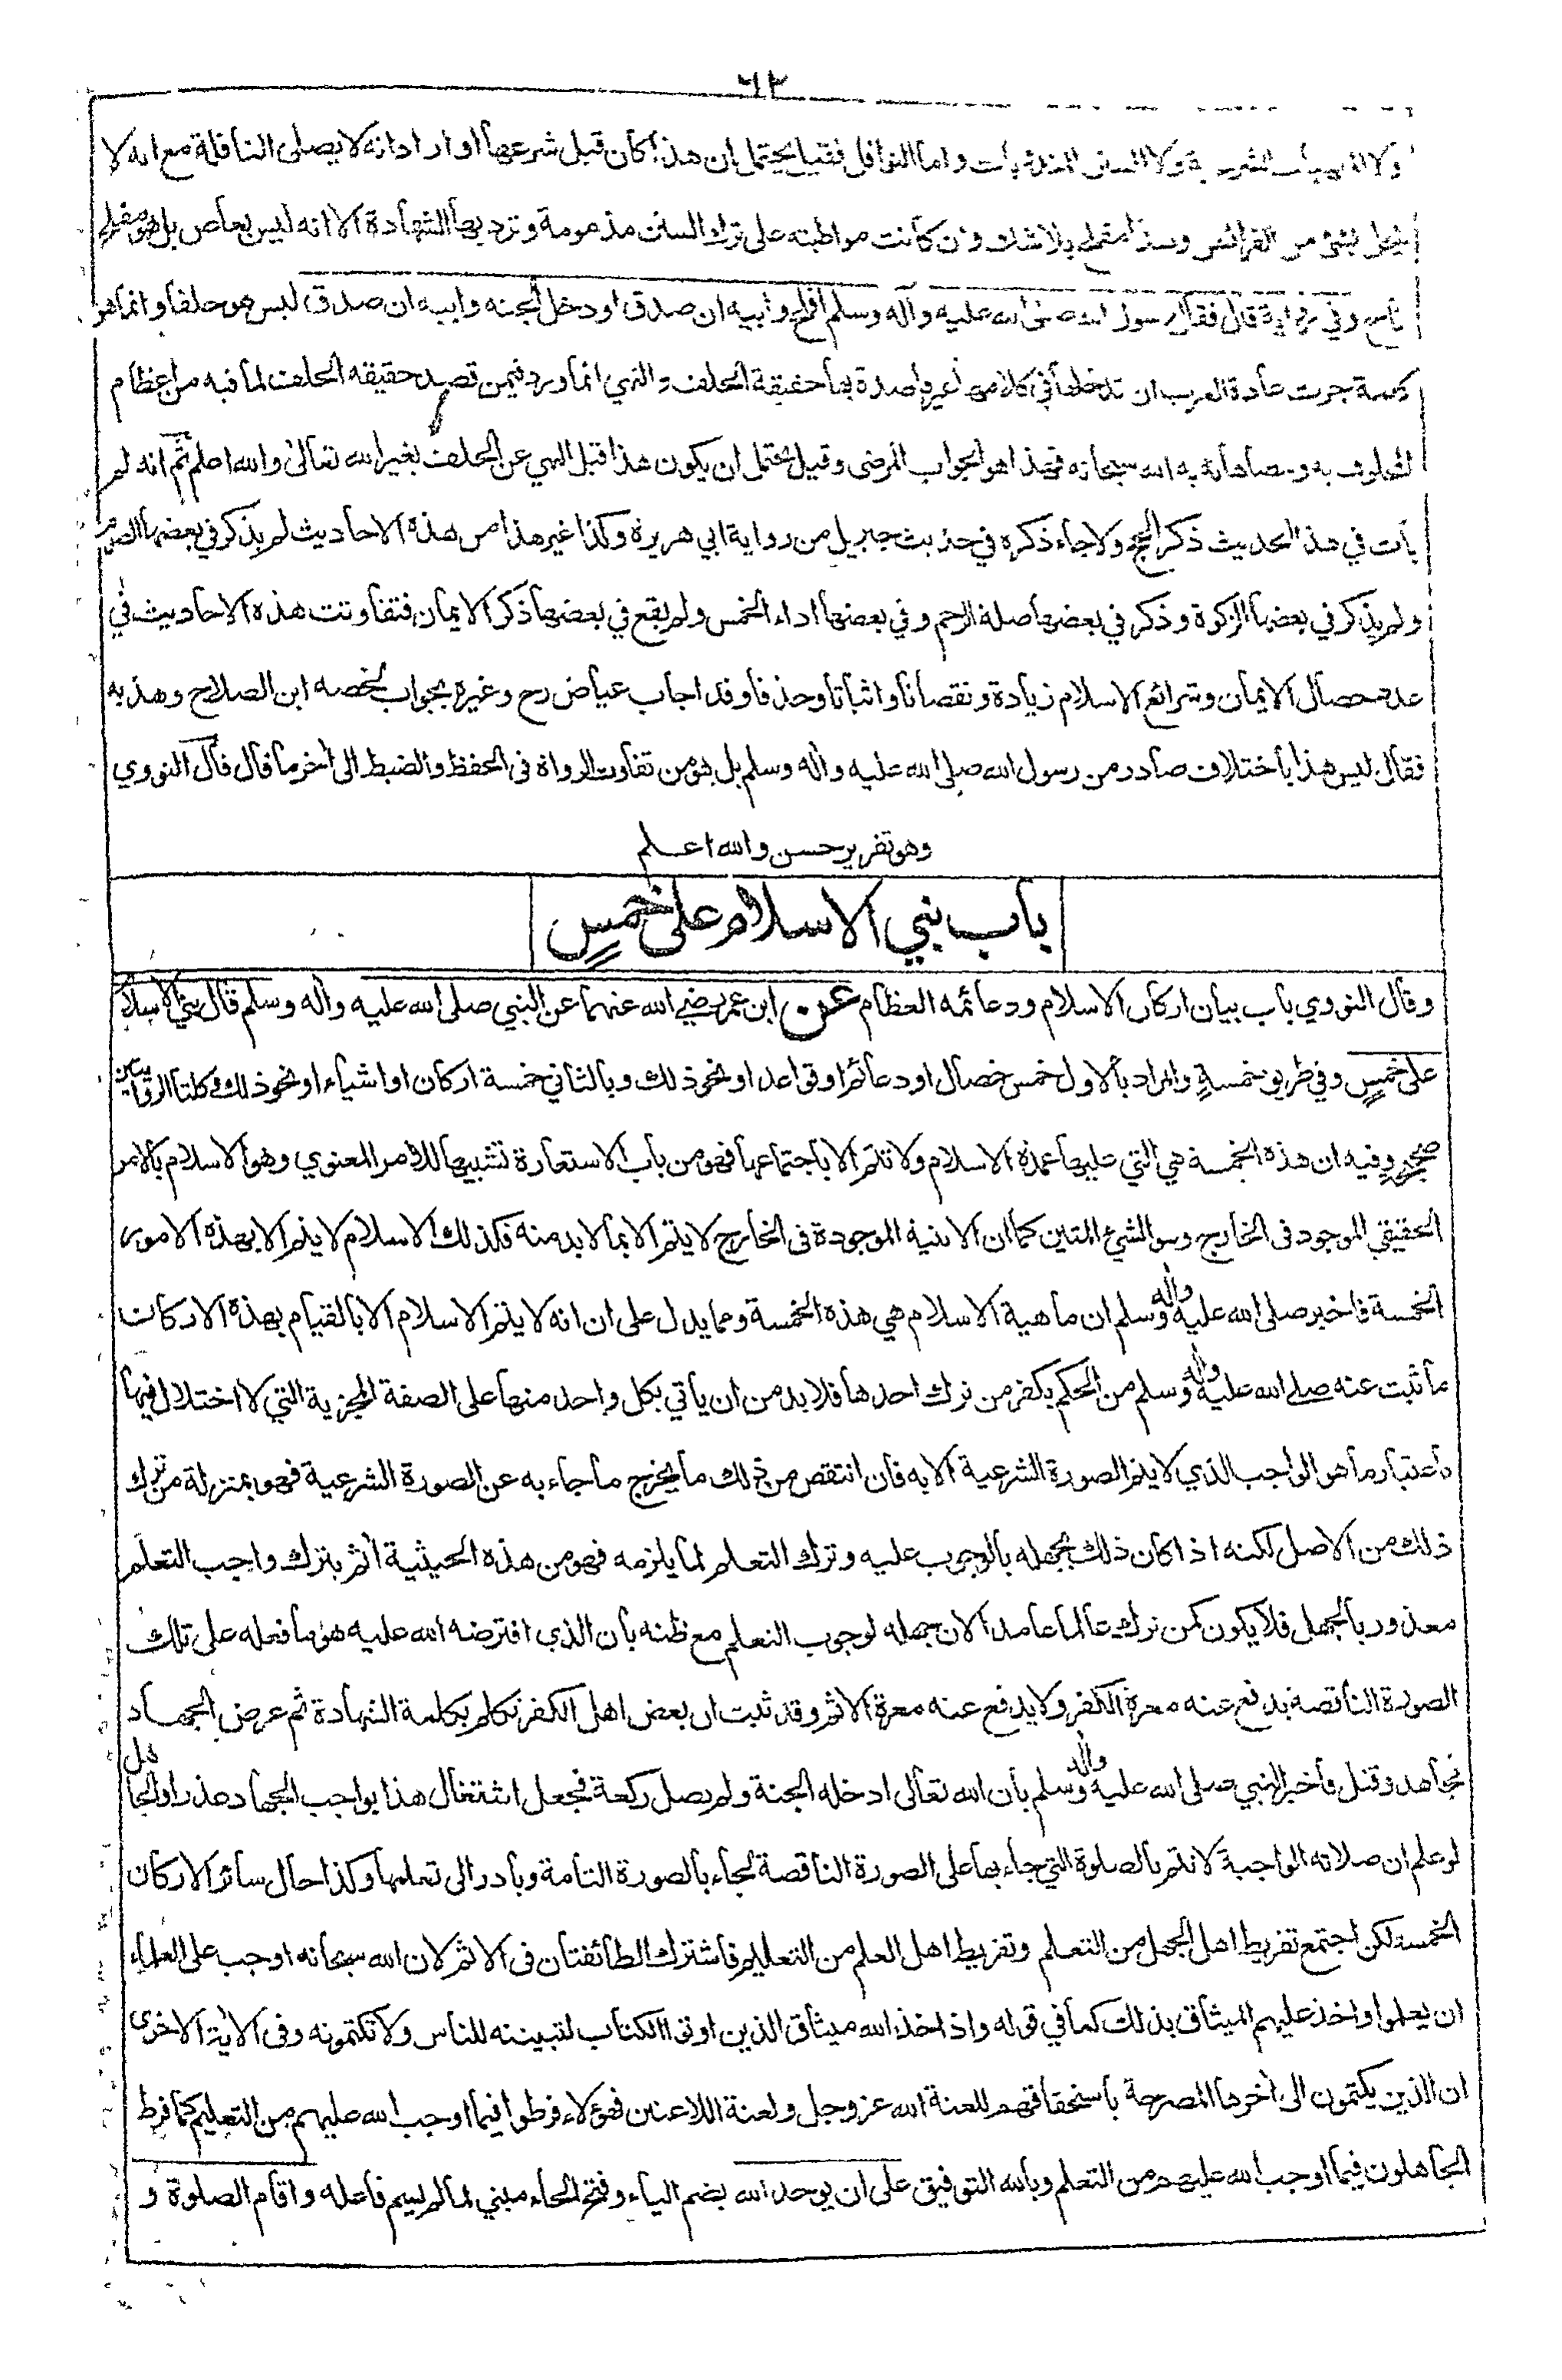 ٦٢
ولا السنن المندوبات واما النوافل فقيل يحتمل ان هذا كان قبل شرعها او اراد انه لا يصلى النافلة مع انه لا
يخل بشئ من الفرائض وهذا مفلح بلا شك وان كانت مواظبته على ترك السنن مذمومة وترد بها الشهادة الا انه ليس بعاص بل هو مفلح
ناج وفي رواية قال فقال رسول الله صلى الله عليه وآله وسلم أفلح وأبيه ان صدق او دخل الجنه وابيه ان صدق ليس هو حلفا وانما هو
كلمة جرت عادة العرب ان تدخلها في كلامها غير قاصدة بها حقيقة الحلف والنهي انما ورد فيمن قصد حقيقه الحلف لما فيه من اعظام
المحلوف به ومضاهاته به الله سبحانه فهذا هو الجواب المرضى وقيل يحتمل ان يكون هذا قبل النهي عن الحلف بغير الله تعالى والله اعلم ثم انه لم
يأت في هذا الحديث ذكر الحج ولا جاء ذكره في حديث جبريل من رواية ابي هريرة وكذا غير هذا من هذه الاحاديث لم يذكر في بعضها الصوم
ولم يذكر في بعضها الزكوة وذكر في بعضها صلة الرحم وفي بعضها اداء الخمس ولم يقع في بعضها ذكر الايمان فتفاوتت هذه الاحاديث في
عدد خصال الايمان وشرائع الاسلام زيادة ونقصانا واثباتا وحذفا وقد اجاب عياض رح وغيره بجواب لخصه ابن الصلاح وهذبه
فقال ليس هذا باختلاف صادر من رسول الله صلى الله عليه وآله وسلم بل هو من تفاوت الرواة فى الحفظ والضبط الى آخر ما قال قال النووي
وهو تقرير حسن والله اعلم
باب بني الاسلام على خمسٍ
وقال النووي باب بيان اركان الاسلام ودعائمه العظام عن ابن عمر رضي الله عنهما عن النبي صلى الله عليه وآله وسلم قال بني الاسلام
على خمسٍ وفي طريق خمسةٍ والمراد بالاول خمس خصال او دعائم او قواعد او نحو ذلك وبالثاني خمسة اركان او اشياء او نحو ذلك وكلتا الروايتين
صحيح وفيه ان هذه الخمسة هي التي عليها عمدة الاسلام ولا تتم الا باجتماعها فهو من باب الاستعارة تشبيها للامر المعنوي وهو الاسلام بالامر
الحقيقي الموجود فى الخارج وهو الشئ المتين كما ان الابنية الموجودة فى الخارج لا يتم الا بما لابد منه فكذلك الاسلام لا يتم الا بهذه الامور
الخمسة فاخبر صلى الله عليه وآله وسلم ان ماهية الاسلام هي هذه الخمسة ومما يدل على ان انه لا يتم الاسلام الا بالقيام بهذه الاركان
ما ثبت عنه صلى الله عليه وآله وسلم من الحكم بكفر من ترك احدها فلا بد من ان يأتي بكل واحد منها على الصفة المجزية التي لا اختلال فيها
باعتبار ما هو الواجب الذي لا يتم الصورة الشرعية الا به فان انتقص من ذلك ما يخرج ما جاء به عن الصورة الشرعية فهو بمنزلة من ترك
ذلك من الاصل لكنه اذا كان ذلك لجهله بالوجوب عليه وترك التعلم لما يلزمه فهو من هذه الحيثية آثم بترك واجب التعلم
معذور بالجهل فلا يكون كمن ترك عالما عامدا لان جهله لوجوب التعلم مع ظنه بان الذي افترضه الله عليه هو ما فعله على تلك
الصورة الناقصة يدفع عنه معرة الكفر ولا يدفع عنه معرة الاثم وقد ثبت ان بعض اهل الكفر تكلم بكلمة الشهادة ثم عرض الجهاد
فجاهد وقتل فأخبر النبي صلى الله عليه وآله وسلم بأن الله تعالى ادخله الجنة ولم يصل ركعة فجعل اشتغال هذا بواجب الجهاد عذرا والجاهل
لو علم ان صلاته الواجبة لا تتم بالصلوة التي جاء بها على الصورة الناقصة لجاء بالصورة التامة وبادر الى تعلمها وكذا حال سائر الاركان
الخمسة لكن اجتمع تفريط اهل الجهل من التعلم وتفريط اهل العلم من التعليم فاشترك الطائفتان فى الاثم لان الله سبحانه اوجب على العلماء
ان يعلموا واخذ عليهم الميثاق بذلك كما في قوله واذ اخذ الله ميثاق الذين اوتوا الكتاب لتبيننه للناس ولا تكتمونه وفى الاية الاخرى
ان الذين يكتمون الى آخرها المصرحة باستحقاقهم للعنة الله عز وجل ولعنة اللاعنين فهؤلاء فرطوا فيما اوجب الله عليهم من التعليم كما فرط
الجاهلون فيما اوجب الله عليهم من التعلم وبالله التوفيق على ان يوحد الله بضم الياء وفتح الحاء مبني لما لم يسم فاعله واقام الصلوة و